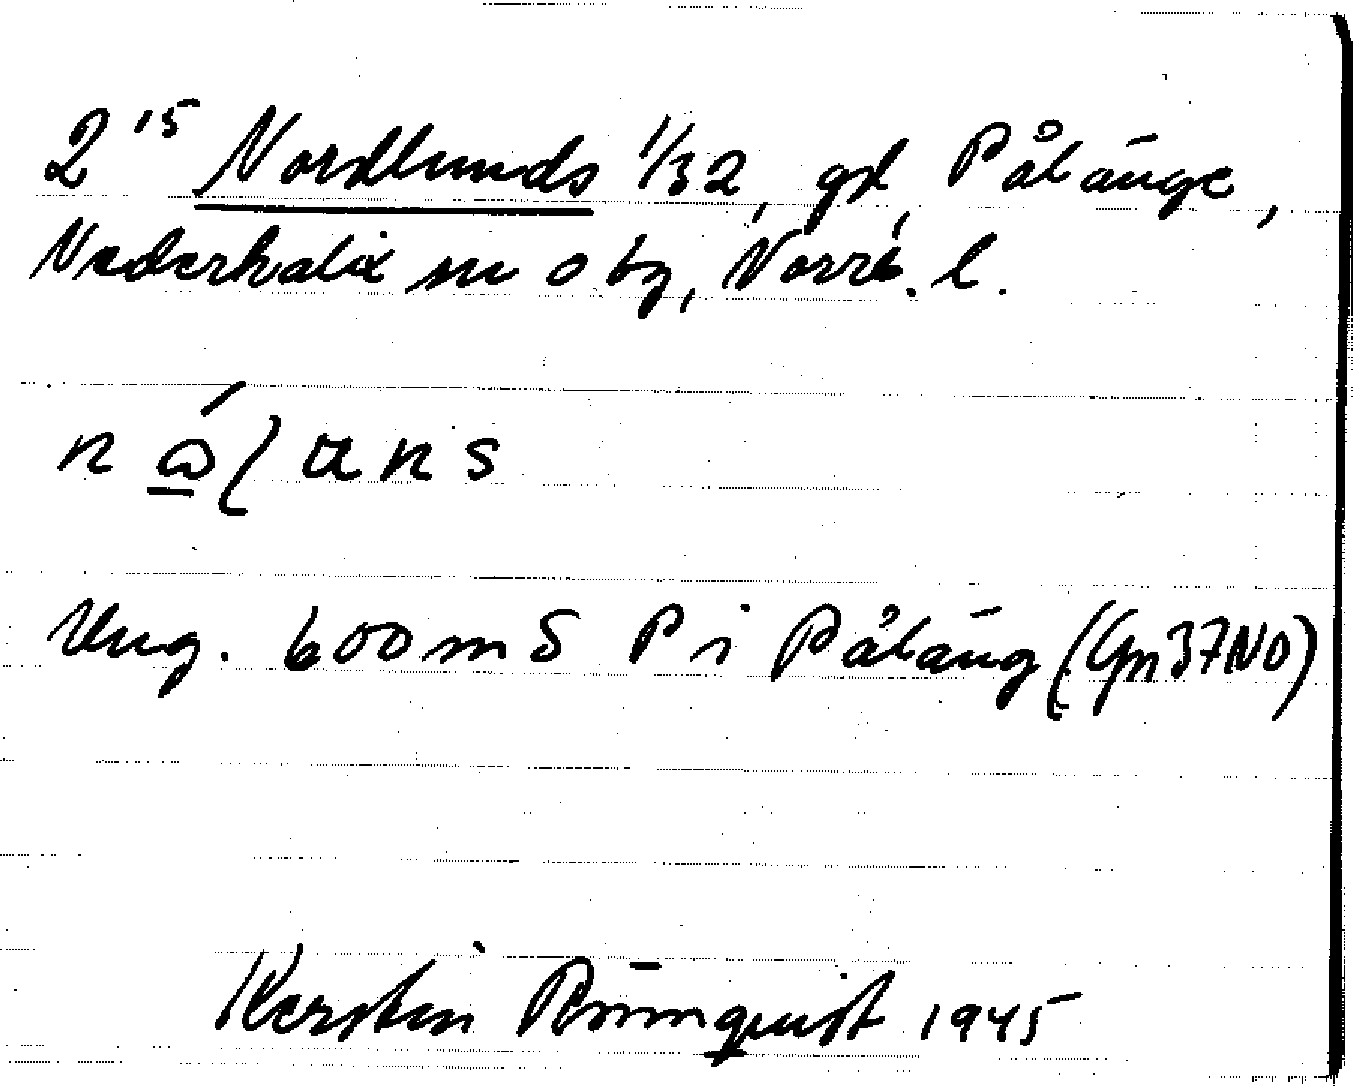 2¹⁵ Nordlunds 1/32, gd, Pålänge,
Nederkalix sn o tg, Norrb. l.
Ung. 600 m S P i Påläng (Gn 37NO)
Kerstin Rönnquist 1945